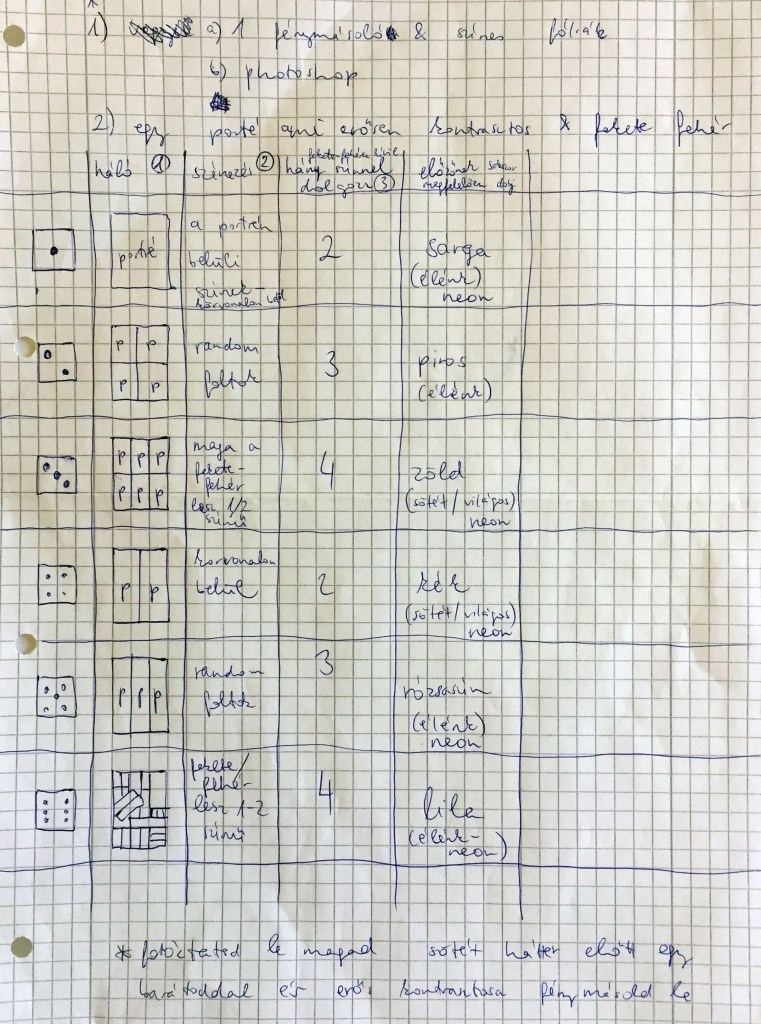 *
1) a) 1 fénymásoló & színes fóliák
b) photoshop
2) egy portré ami erősen kontrasztos & fekete fehér
háló ①
színezés ②
fekete-fehéren kívül
hány színnel
dolgozz ③
előzőnek
megfelelően dobj
portré
a portrén
belüli
színek-
körvonalon belül
2
sárga
(élénk)
neon
P P
P P
random
foltok
3
piros
(élénk)
P P P
P P P
maga a
fekete-
fehér
lesz 1/2
színű
4
zöld
(sötét/világos)
neon
P P
körvonalon
belül
2
kék
(sötét/világos)
neon
P P P
random
foltok
3
rózsaszín
(élénk)
neon
fekete/
fehér
lesz 1-2
színű
4
lila
(élénk-
neon)
* fotóztasd le magad sötét háttér előtt egy
barátoddal és erős kontrasztosa fénymásold le